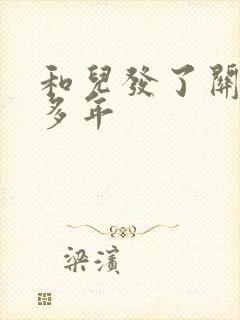 和兒發了關
多年
梁濱